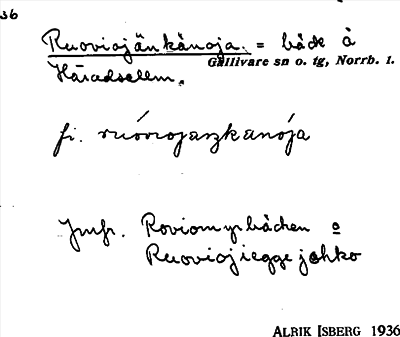 36
Ruoviojänkänoja. = bäck å
Gällivare sn o. tg, Norrb. l.
Häradsallm.
fi. ruóvvojaszkanója
Jmfr. Roviomyrbäcken o
Ruoviojieggejohko
ALRIK ISBERG 1936